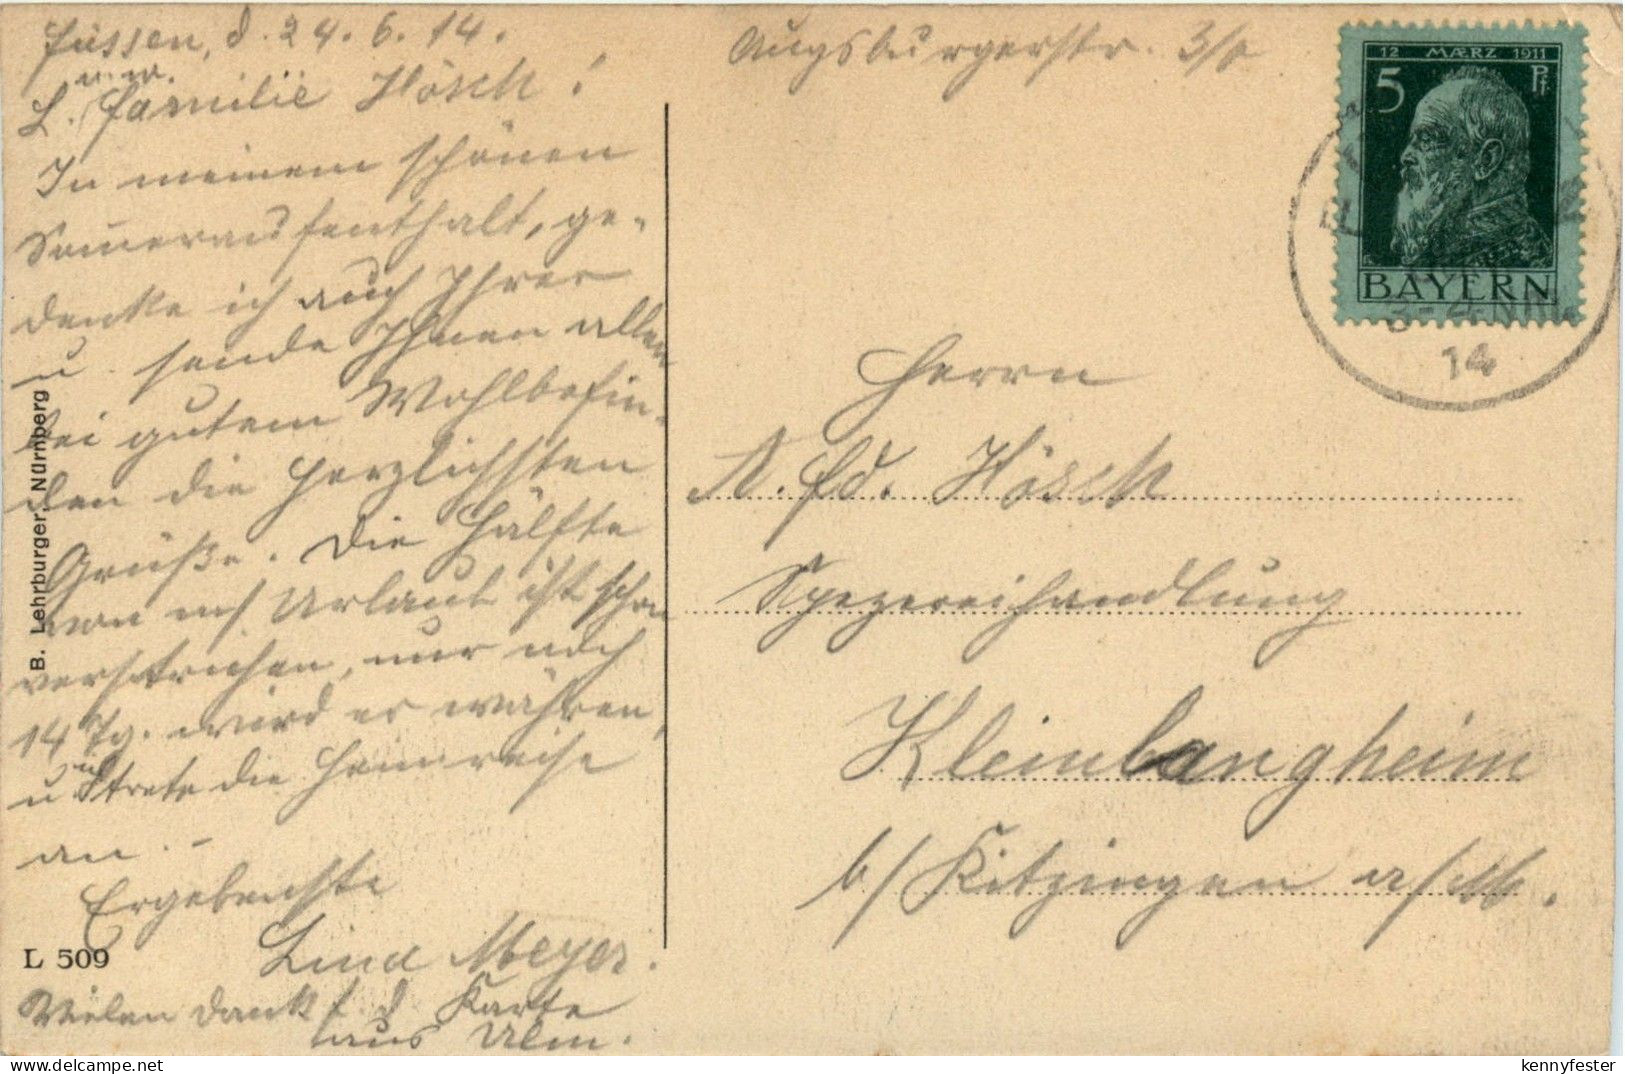 Füssen, d. 24. 6. 14.
Augsburgerstr. 3/0
L. Familie Hösch!
In meinem schönen
Som̅eraufenthalt, ge-
denke ich auch Ihrer
u. sende Ihnen allen
bei gutem Wohlbefin-
den die herzlichsten
Grüße. Die Hälfte
von Urlaub ist schon
verstrichen, nur noch
14 Tg. wird es währen,
u trete die Heimreise
an. -
Ergebenste
Lina Meyer.
Vielen Dank f. d Karte
aus Ulm.
B. Lehrburger, Nürnberg
L 509
12 MÆRZ 1911
5 Pf.
BAYERN
14
Herrn
Hösch
Spezereihandlung
Kleinlangheim
b/ Kitzingen a/M.
kennyfester